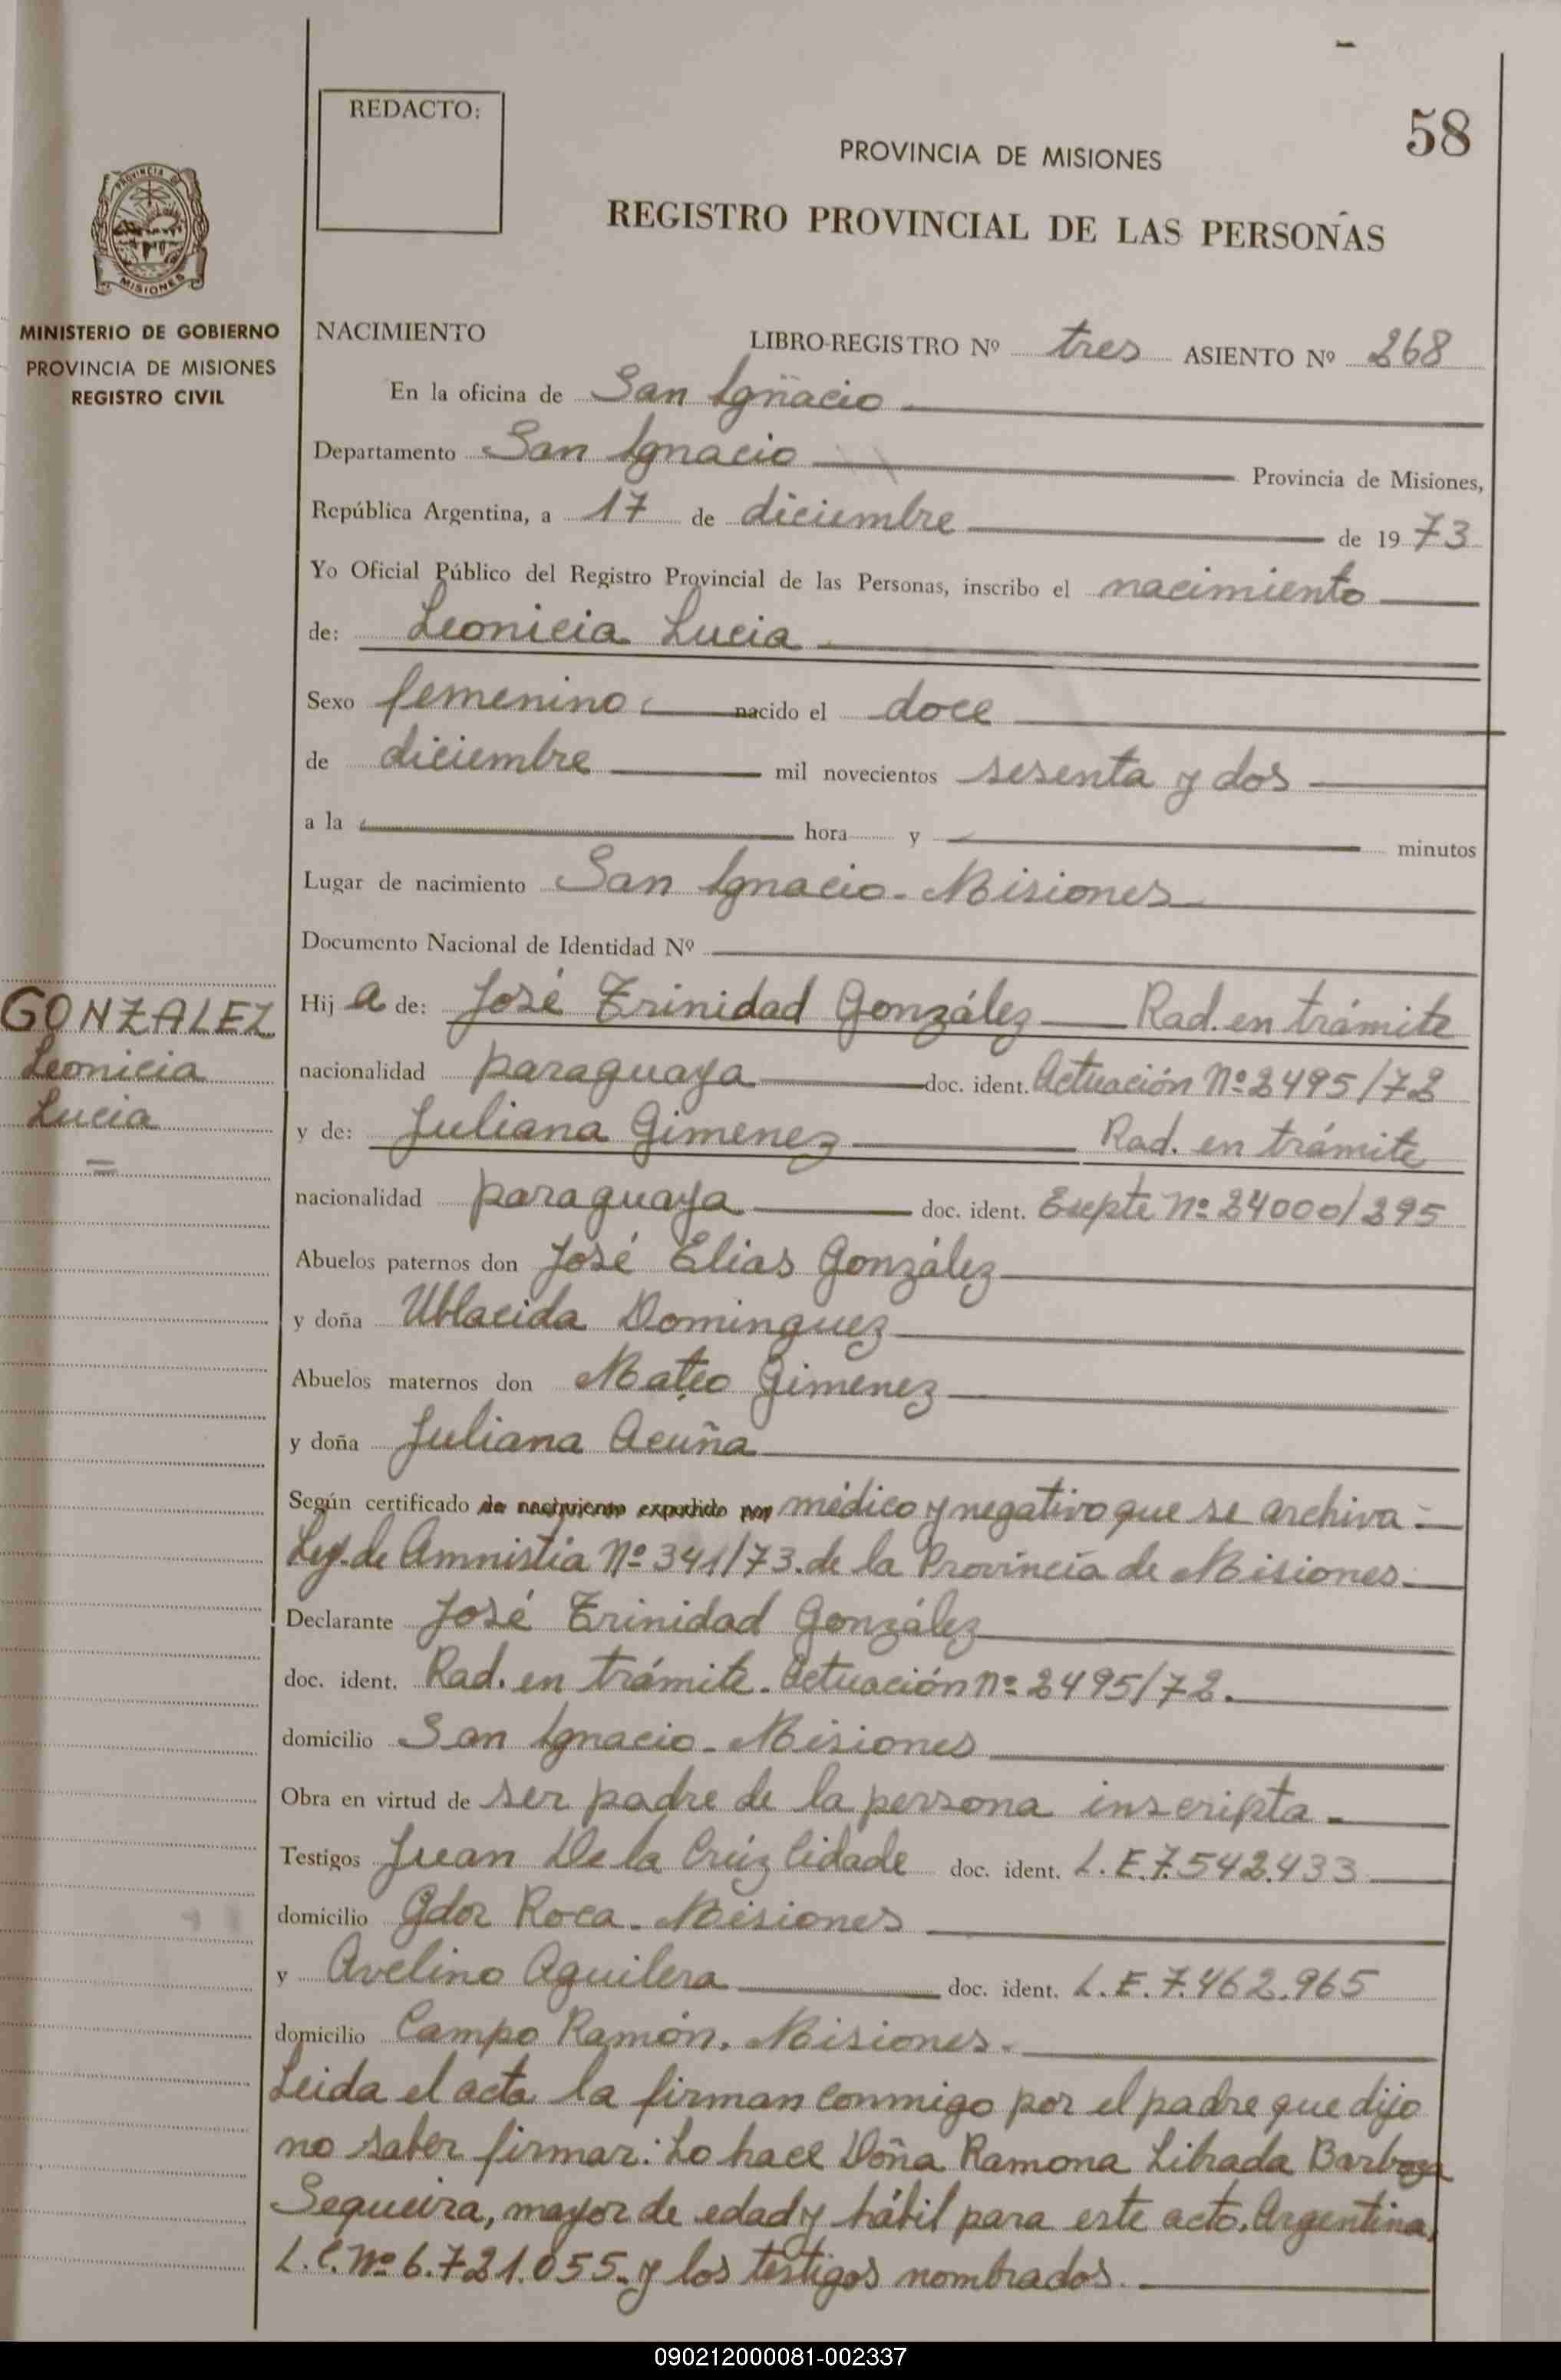 REDACTO:
58
PROVINCIA DE MISIONES
REGISTRO PROVINCIAL DE LAS PERSONAS
PROVINCIA DE
MISIONES
MINISTERIO DE GOBIERNO
PROVINCIA DE MISIONES
REGISTRO CIVIL
NACIMIENTO LIBRO-REGISTRO Nº tres ASIENTO Nº 268
En la oficina de San Ignacio
Departamento San Ignacio Provincia de Misiones,
República Argentina, a 17 de diciembre de 1973
Yo Oficial Público del Registro Provincial de las Personas, inscribo el nacimiento
de: Leonicia Lucia
Sexo femenino nacido el doce
de diciembre mil novecientos sesenta y dos
a la hora y minutos
Lugar de nacimiento San Ignacio - Misiones
Documento Nacional de Identidad Nº
GONZALEZ
Leonicia
Lucia
Hij a de: José Trinidad González Rad. en trámite
nacionalidad paraguaya doc. ident. Actuación Nº 2495/72
y de: Juliana Gimenez Rad. en trámite
nacionalidad paraguaya doc. ident. Expte Nº 24000/295
Abuelos paternos don José Elias González
y doña Ublacida Dominguez
Abuelos maternos don Mateo Gimenez
y doña Juliana Acuña
Según certificado de nacimiento expedido por médico y negativo que se archiva -
Ley de Amnistía Nº 341/73. de la Provincia de Misiones.
Declarante José Trinidad González
doc. ident. Rad. en trámite. Actuación Nº 2495/72.
domicilio San Ignacio - Misiones
Obra en virtud de ser padre de la persona inscripta -
Testigos Juan De la Crúz Cidade doc. ident. L.E. 7.542.433
domicilio Gdor Roca - Misiones
y Avelino Aguilera doc. ident. L.E. 7.462.965
domicilio Campo Ramón. Misiones.
Leida el acta la firman conmigo por el padre que dijo
no saber firmar: Lo hace Doña Ramona Librada Barboza
Sequeira, mayor de edad y hábil para este acto, Argentina,
L.C. Nº 6.721.055. y los testigos nombrados.
090212000081-002337